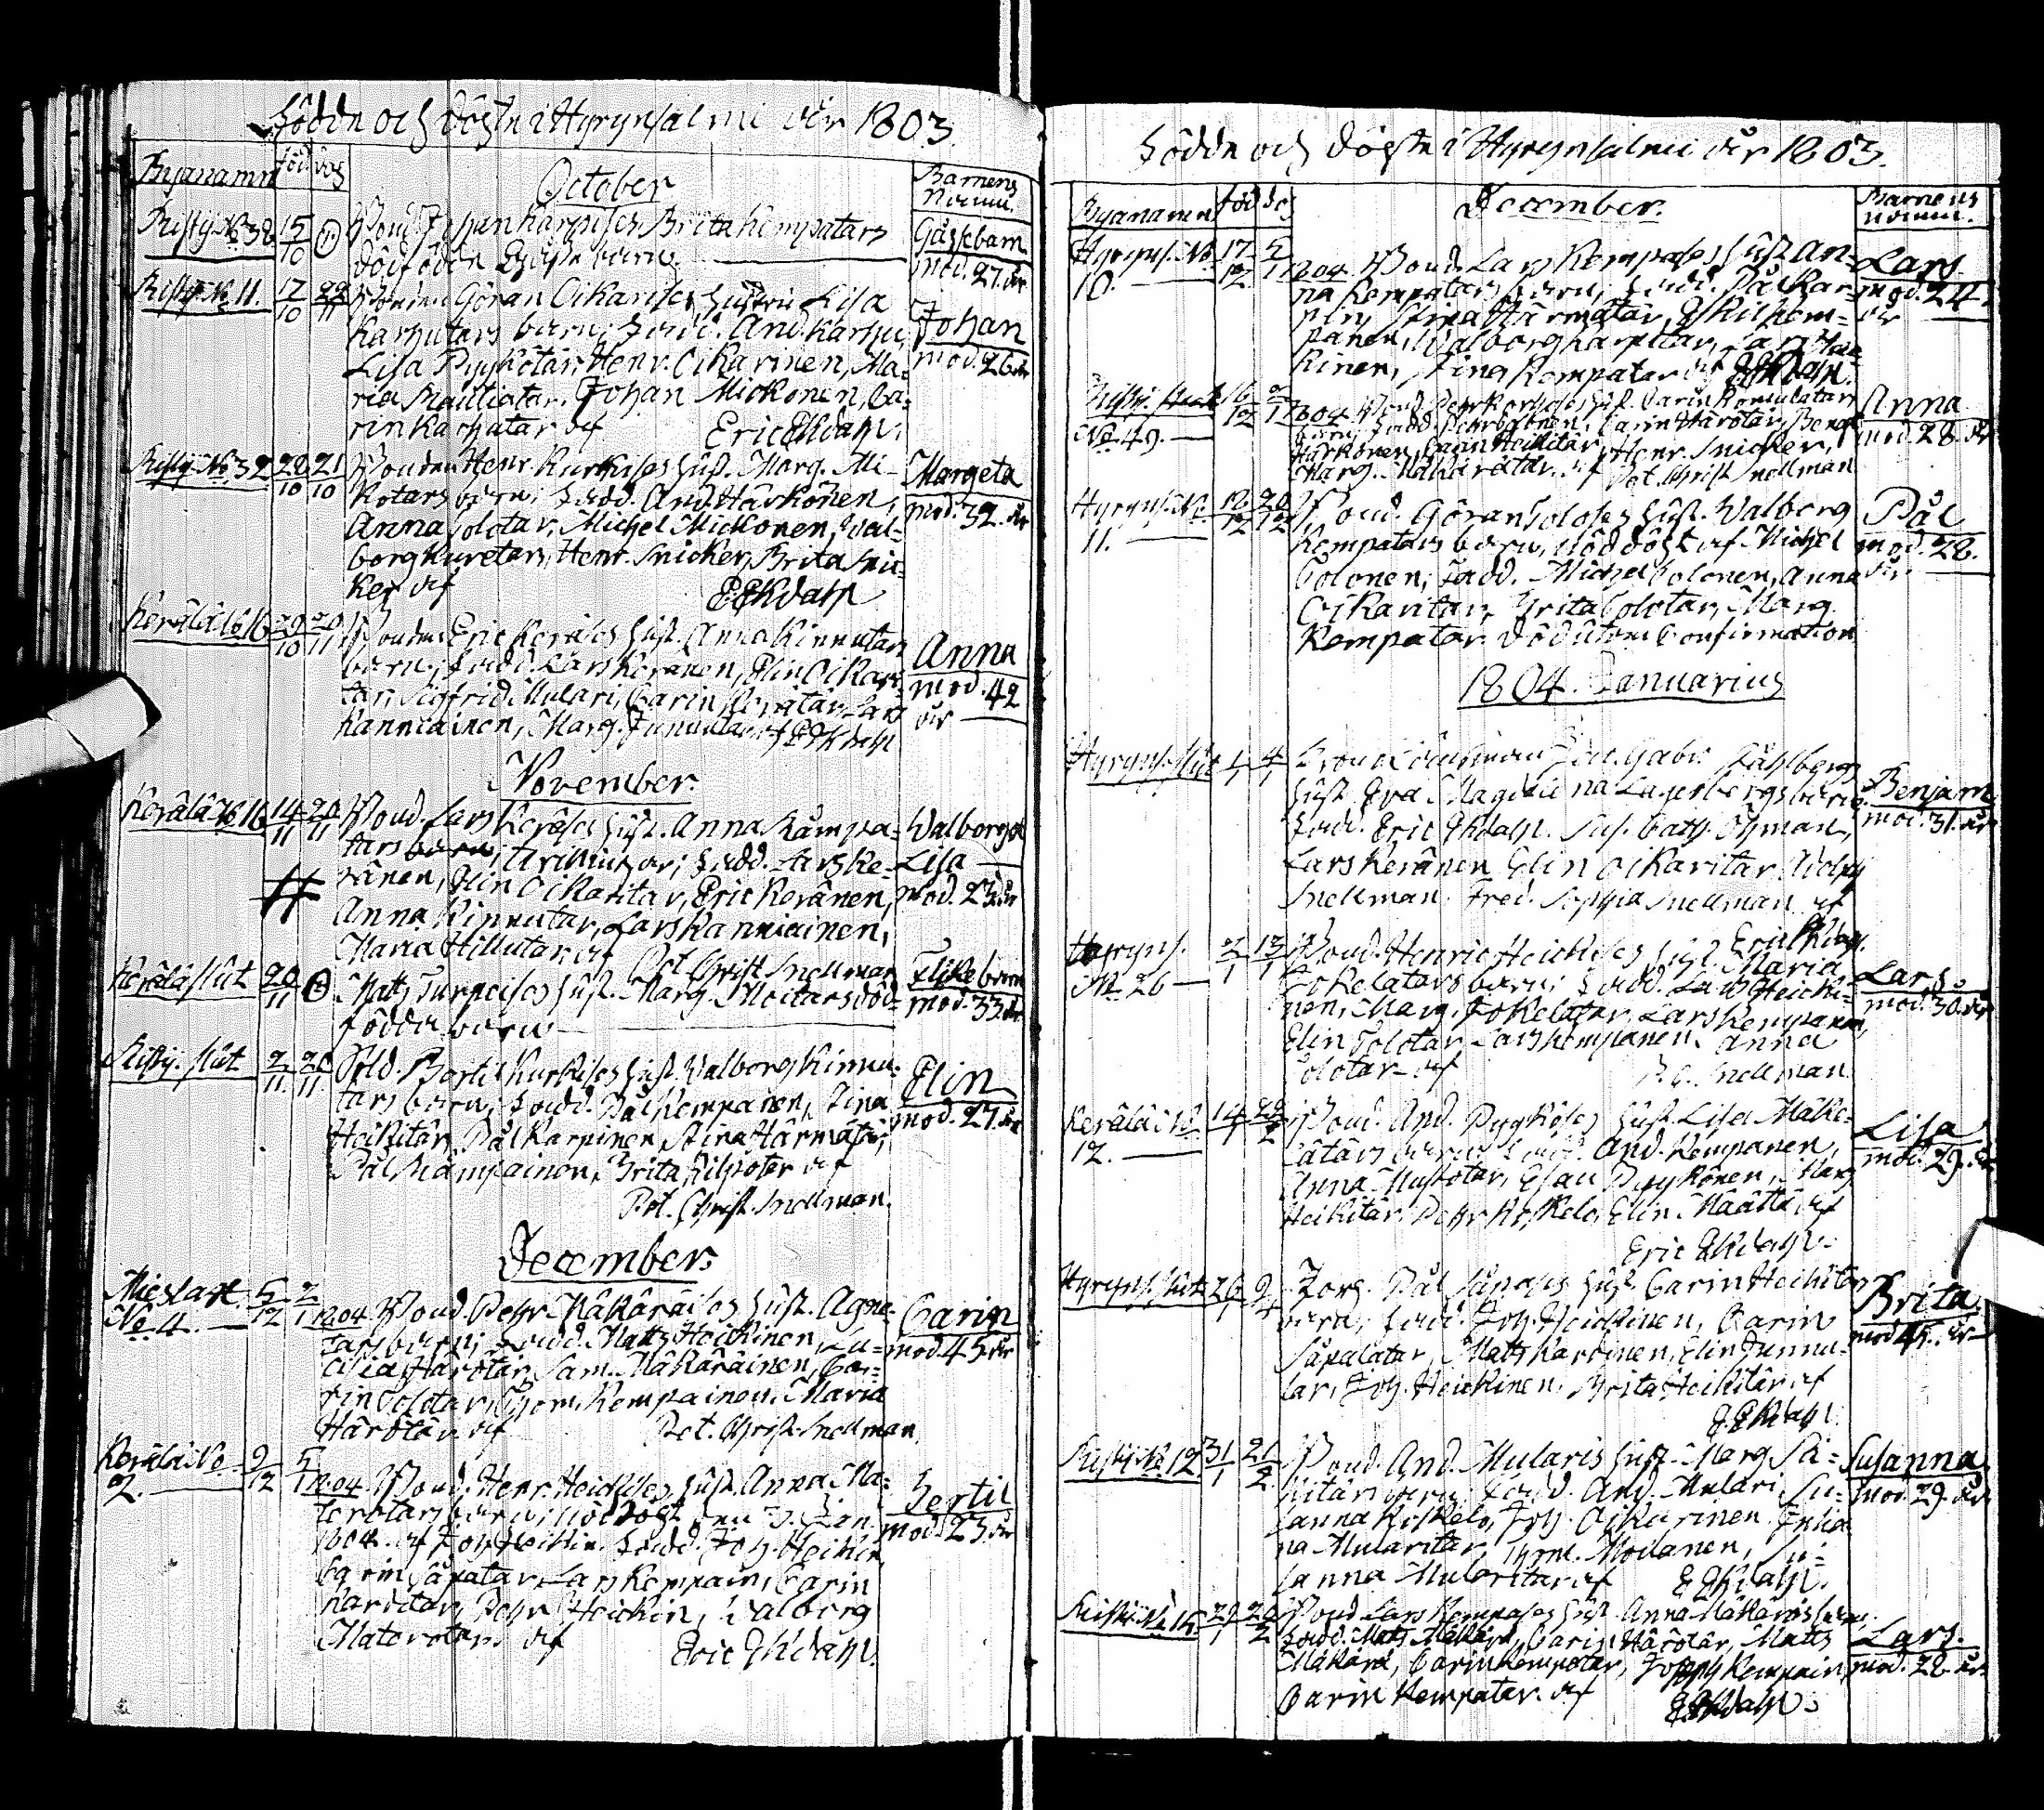 Födde och Döpte i Hyrynsalmi år 1803.
Byanamn
född
döp
October
Barnens
Namn.
Risty. No 38
15
10
Bond. Johan Karpises Brita Kempatars
dödfödda barn
Gåssebarn
mod. 27. år
Risty. No 11.
17
10
22
11
Bonden Göran Oikarises hustru Lisa
Karputars barn; Fadd. And. Karpu,
Lisa Pyykötär, Henr. Oikarinen, Ma-
ria Mautiatar, Johan Mickonen, Ca-
rin Karpatar af Eric Ekdahl.
Johan
mod. 26 år
Risty. No 32
28
10
21
10
Bonden Henr. Kurkises hust. Marg. Mi-
kotars barn; Fadd. And. Härkönen,
Anna Tolotar, Michel Mickonen, Wal-
borg Kuretar, Henr. Snicker, Brita Snic-
ker af E. Ekdahl
Margeta
mod. 32. år
Kerälä No 16
29
10
20
11
Bonden Eric Keräses hust. Anna Kinnutars
barn; Fadd. Lars Keränen, Elin Oikari-
tar, Sigfrid Mulari, Carin Kerätär, Lars
Kanniainen, Marg. Junnutar af E. Ekdahl
Anna
mod. 42
år
November.
Kerälä No 16
14
11
20
11
Bond. Lars Keräses hust. Anna Kämpä-
tars barn; Fadd. Lars Ke-
ränen, Elin Oikaritar, Eric Keränen,
Anna Kinnutar, Lars Kanniainen,
Maria Hillutar af Pet. Christ. Snellman
Walborg
Lisa
mod. 23 år
Kerälä slut
20
11
Matts Turpeises hust. Marg. Moitars död-
födda barn
Flikebarn
mod. 33 år
Risty. slut
2
11
20
11
Sold. Bertil Kurkises hust. Walborg Kinnu-
tars barn; Fadd. Pål Kempainen, Stina
Heikitär, Pål Karpinen, Stina Härmätär,
Pål Kämpainen, Brita Filpotar af
Pet. Christ. Snellman.
Elin
mod. 27. år
December.
Mieslax
No 4.
5
12
2
1
1804 Bond. Pehr Mäkäräises hust. Agne-
tas barn; Fadd. Matts Heickinen, Lu-
cilia Härötär, Sam. Mäkäräinen, Ca-
rin Tolotar, Thom. Kempainen, Maria
Härötär af Pet. Christ. Snellman
Carin
mod. 45 år
Kerälä No
2.
9
12
5
1
1804 Bond. Henr. Heickises hust. Anna Ma-
terotars barn, nöddöpt den 3. Jan.
1804. af Joh. Heikin. Fadd. Joh. Heikin
Carin Säpatar, Lars Kempain, Carin
Karvitar, Pehr Heickin, Walborg
Materotar. af Eric Ekdahl.
Bertil
mod. 23 år
Födde och Döpte i Hyrynsalmi år 1803.
Byanamn
född
dö
December.
Barnens
namn.
Hyryns. No
10.
17
12
5
1
1804. Bond. Lars Kempases hust. An-
na Kempatars barn; Fadd. Pål Kar-
pin, Stina Härmätär, Eskil Kem-
panen, Walborg Karpatar, Lars Hei-
kinen, Stina Kempatar af E. Ekdahl.
Lars
mod. 24.
år
Risty.
No 49.
16
12
2
1
1804. Bond. Pehr hust. Carin
barn; Fadd. Pehr Carin Härötär, Bengt
Härkönen, Carin Heikitär, Henr. Snicker,
Marg. Mäkärätär. af Pet. Christ. Snellman
Anna
mod. 28. år
Hyryns. No
11.
18
12
26
12
Bond. Göran Toloses hust. Walborg
Kempatars barn, nöddöpt af Michel
Tolonen; Fadd. Michel Tolonen, Anna
Oikaritar, Brita Tolotar, Marg.
Kempatar. död utom Confirmation
Pål
mod. 28.
år
1804. Januarius
Hyryns. slut
1
1
4
1
Crono Länsman Joh. Gabr. Ståhlbergs
hust. Eva Magdalena Lagerbergs barn
Fadd. Eric Ekdahl. Sus. Cath. Öhman,
Lars Keränen, Elin Oikaritar, Adolph
Snellman. Fred. Sophia Snellman af
Eric Ekdahl.
Benjam
mod. 31. år
Hyryns.
No 26
7
1
13
1
Bond. Henric Heickises hust. Maria
Jokelatars barn; Fadd. Lars Heicki-
nen, Marg. Jokelatar, Lars Kempanen,
Elin Tolotar Lars Kempanen. Anna
Tolotar af P. C. Snellman
Lars
mod. 30. år
Kerälä No
12.
14
1
22
2
Bond. And. Pyyköses hust. Lisa Mäke-
lätärs barn Fadd. And. Kempanen,
Anna Mustotar, Esau Pyykönen, Marg
Heikitär, Pehr Koskelo, Elin Määttä af
Eric Ekdahl.
Lisa
mod. 29. år
Hyryns. slut
26
1
9
4
Torp. Pål Säpäses hust. Carin Heikitar
barn; Fadd. Joh. Heickinen, Carin
Säpalatar, Matts Karvinen, Elin Junnu-
tar, Joh. Heickinen, Brita Heikitär af
E. Ekdahl.
Brita
mod. 45. år
Risty. No 12.
31
1
21
2
Bond. And. Mularis hust. Marg. Pä-
kitärs barn Fadd. And. Mulari, Su-
sanna Koskelo, Joh. Oikarinen. Juha-
na Mularitar, Thom. Moilanen, Su-
sanna Mularitar af E. Ekdahl.
Susanna
mod. 29. år
Risty. No 16.
29
1
26
2
Bond Lars Kempases hust. Anna Mäkäräs barn,
Fadd. Matts Mäkärä, Carin Härötär, Matts
Mäkärä, Carin Kempatar, Joseph Kempain,
Carin Kempatar. af E. Ekdahl.
Lars.
mod. 28. år